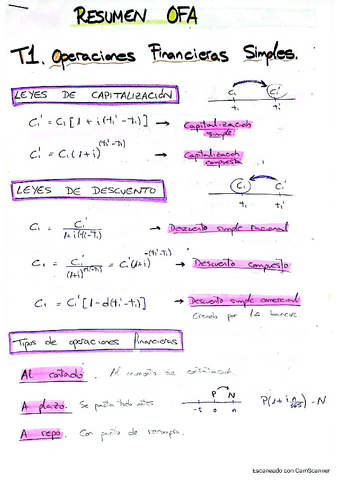 RESUMEN OFA
T1. Operaciones Financieras Simples.
LEYES DE CAPITALIZACIÓN
C₁ C₁'
t₁ t₁'
C₁' = C₁[1 + i(t₁' - t₁)] → Capitalización simple
C₁' = C₁(1+i)^(t₁'-t₁) → Capitalización compuesta
LEYES DE DESCUENTO
C₁ C₁'
t₁ t₁'
C₁ = C₁' / 1+i(t₁'-t₁) → Descuento simple racional
C₁ = C₁' / (1+i)^(t₁'-t₁) = C₁'(1+i)^-(t₁'-t₁) → Descuento compuesto
C₁ = C₁'[1 - d(t₁'-t₁)] → Descuento simple comercial
Creado por la bancos
Tipos de operaciones financieras
Al contado. Al momento de
A plazo. Se pacta todo antes.
P N
-t 0 n
P(1 + i n/365) = N
A repo. Con pacto de recompra.
Escaneado con CamScanner